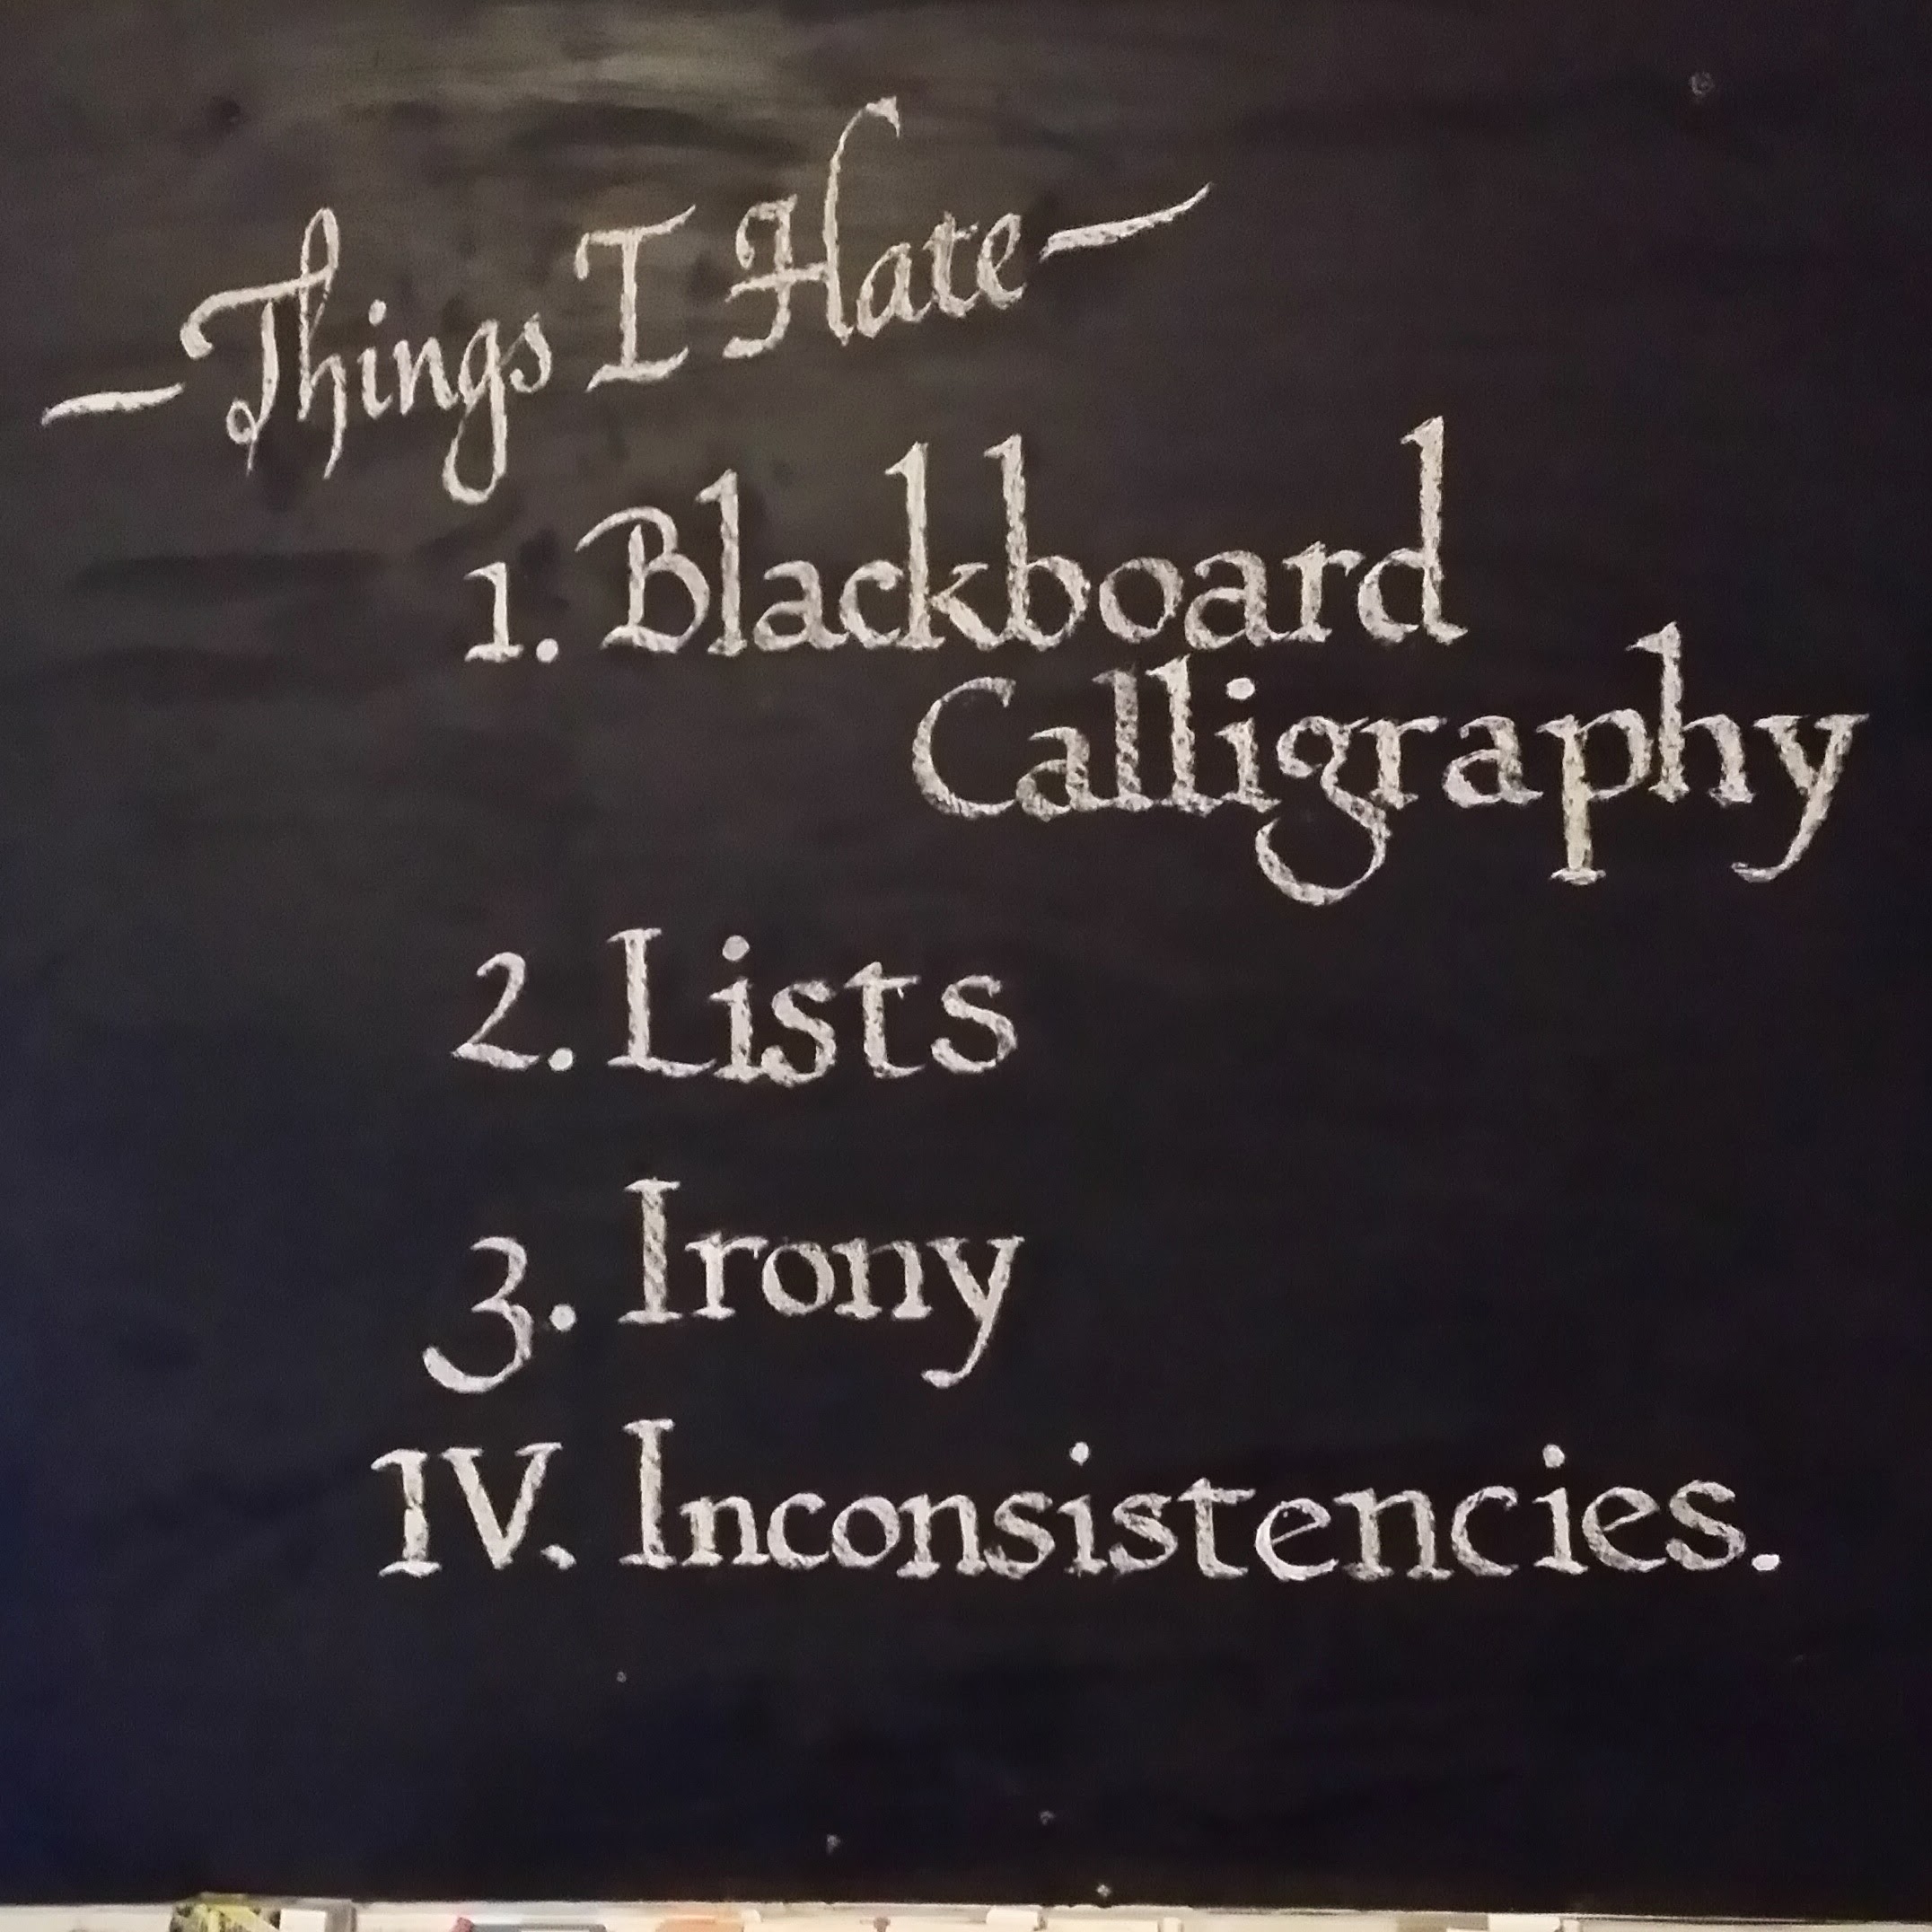 —Things I Hate—
1. Blackboard
Calligraphy
2. Lists
3. Irony
IV. Inconsistencies.